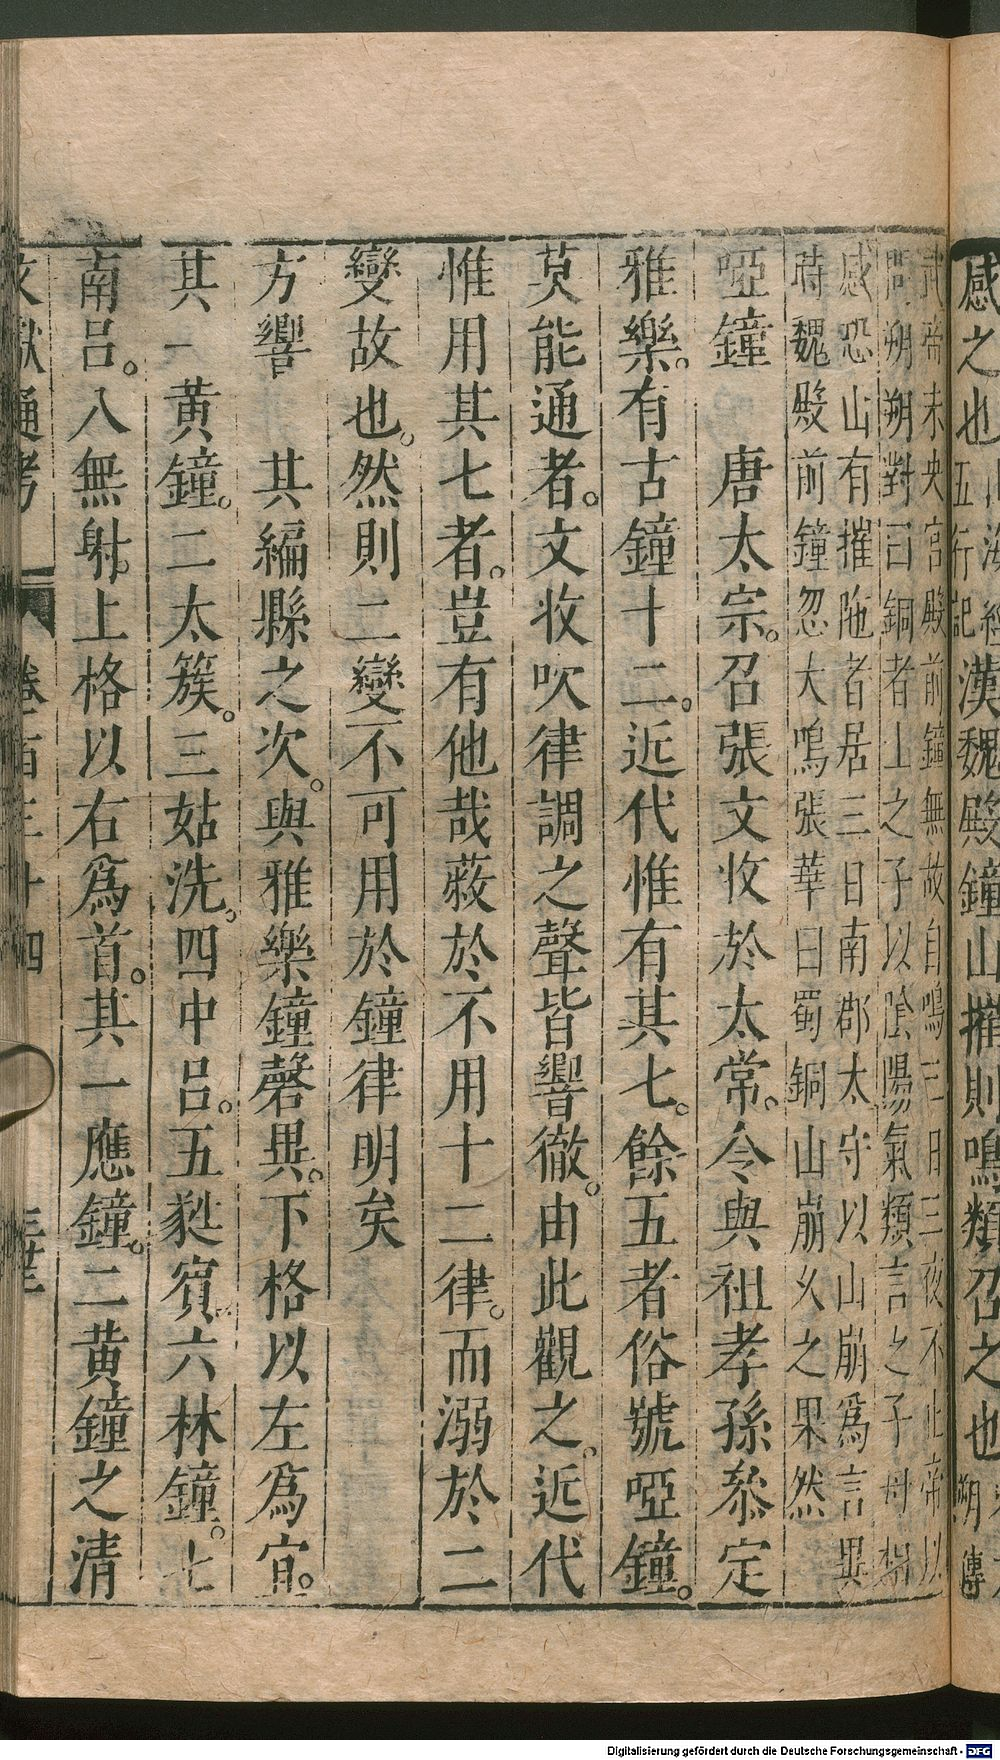 感之也
五行記
漢魏殿鐘山摧則鳴類召之也
朔傳
武帝未央宮殿前鐘無故自鳴三日三夜不止帝以
問朔朔對曰銅者山之子以陰陽氣類言之子母相
感恐山有摧陁者居三日南郡太守以山崩爲言異
時魏殿前鐘忽大鳴張華曰蜀銅山崩久之果然
啞鐘　唐太宗。召張文收於太常。令與祖孝孫叅定
雅樂。有古鐘十二。近代惟有其七。餘五者俗號啞鐘。
莫能通者。文收吹律調之聲皆響徹。由此觀之。近代
惟用其七者。豈有他哉蔽於不用十二律。而溺於二
變故也。然則二變不可用於鐘律明矣
方響　其編縣之次。與雅樂鐘磬異。下格以左爲宜。
其一黃鐘。二太簇。三姑洗。四中呂。五蕤賓。六林鐘。七
南呂。八無射。上格以右爲首。其一應鐘。二黃鐘之清
文獻通考　卷一百三十四